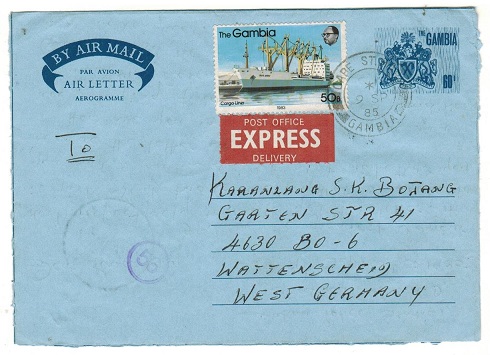 BY AIR MAIL
PAR AVION
AIR LETTER
AEROGRAMME
The Gambia
Cargo Liner
1983
50B
THE GAMBIA
60B
85
GAMBIA
POST OFFICE
EXPRESS
DELIVERY
To
KARANLANG S.K. BOJANG
GARTEN STR 41
4630 BO-6
WATTENSCHEID
WEST GERMANY